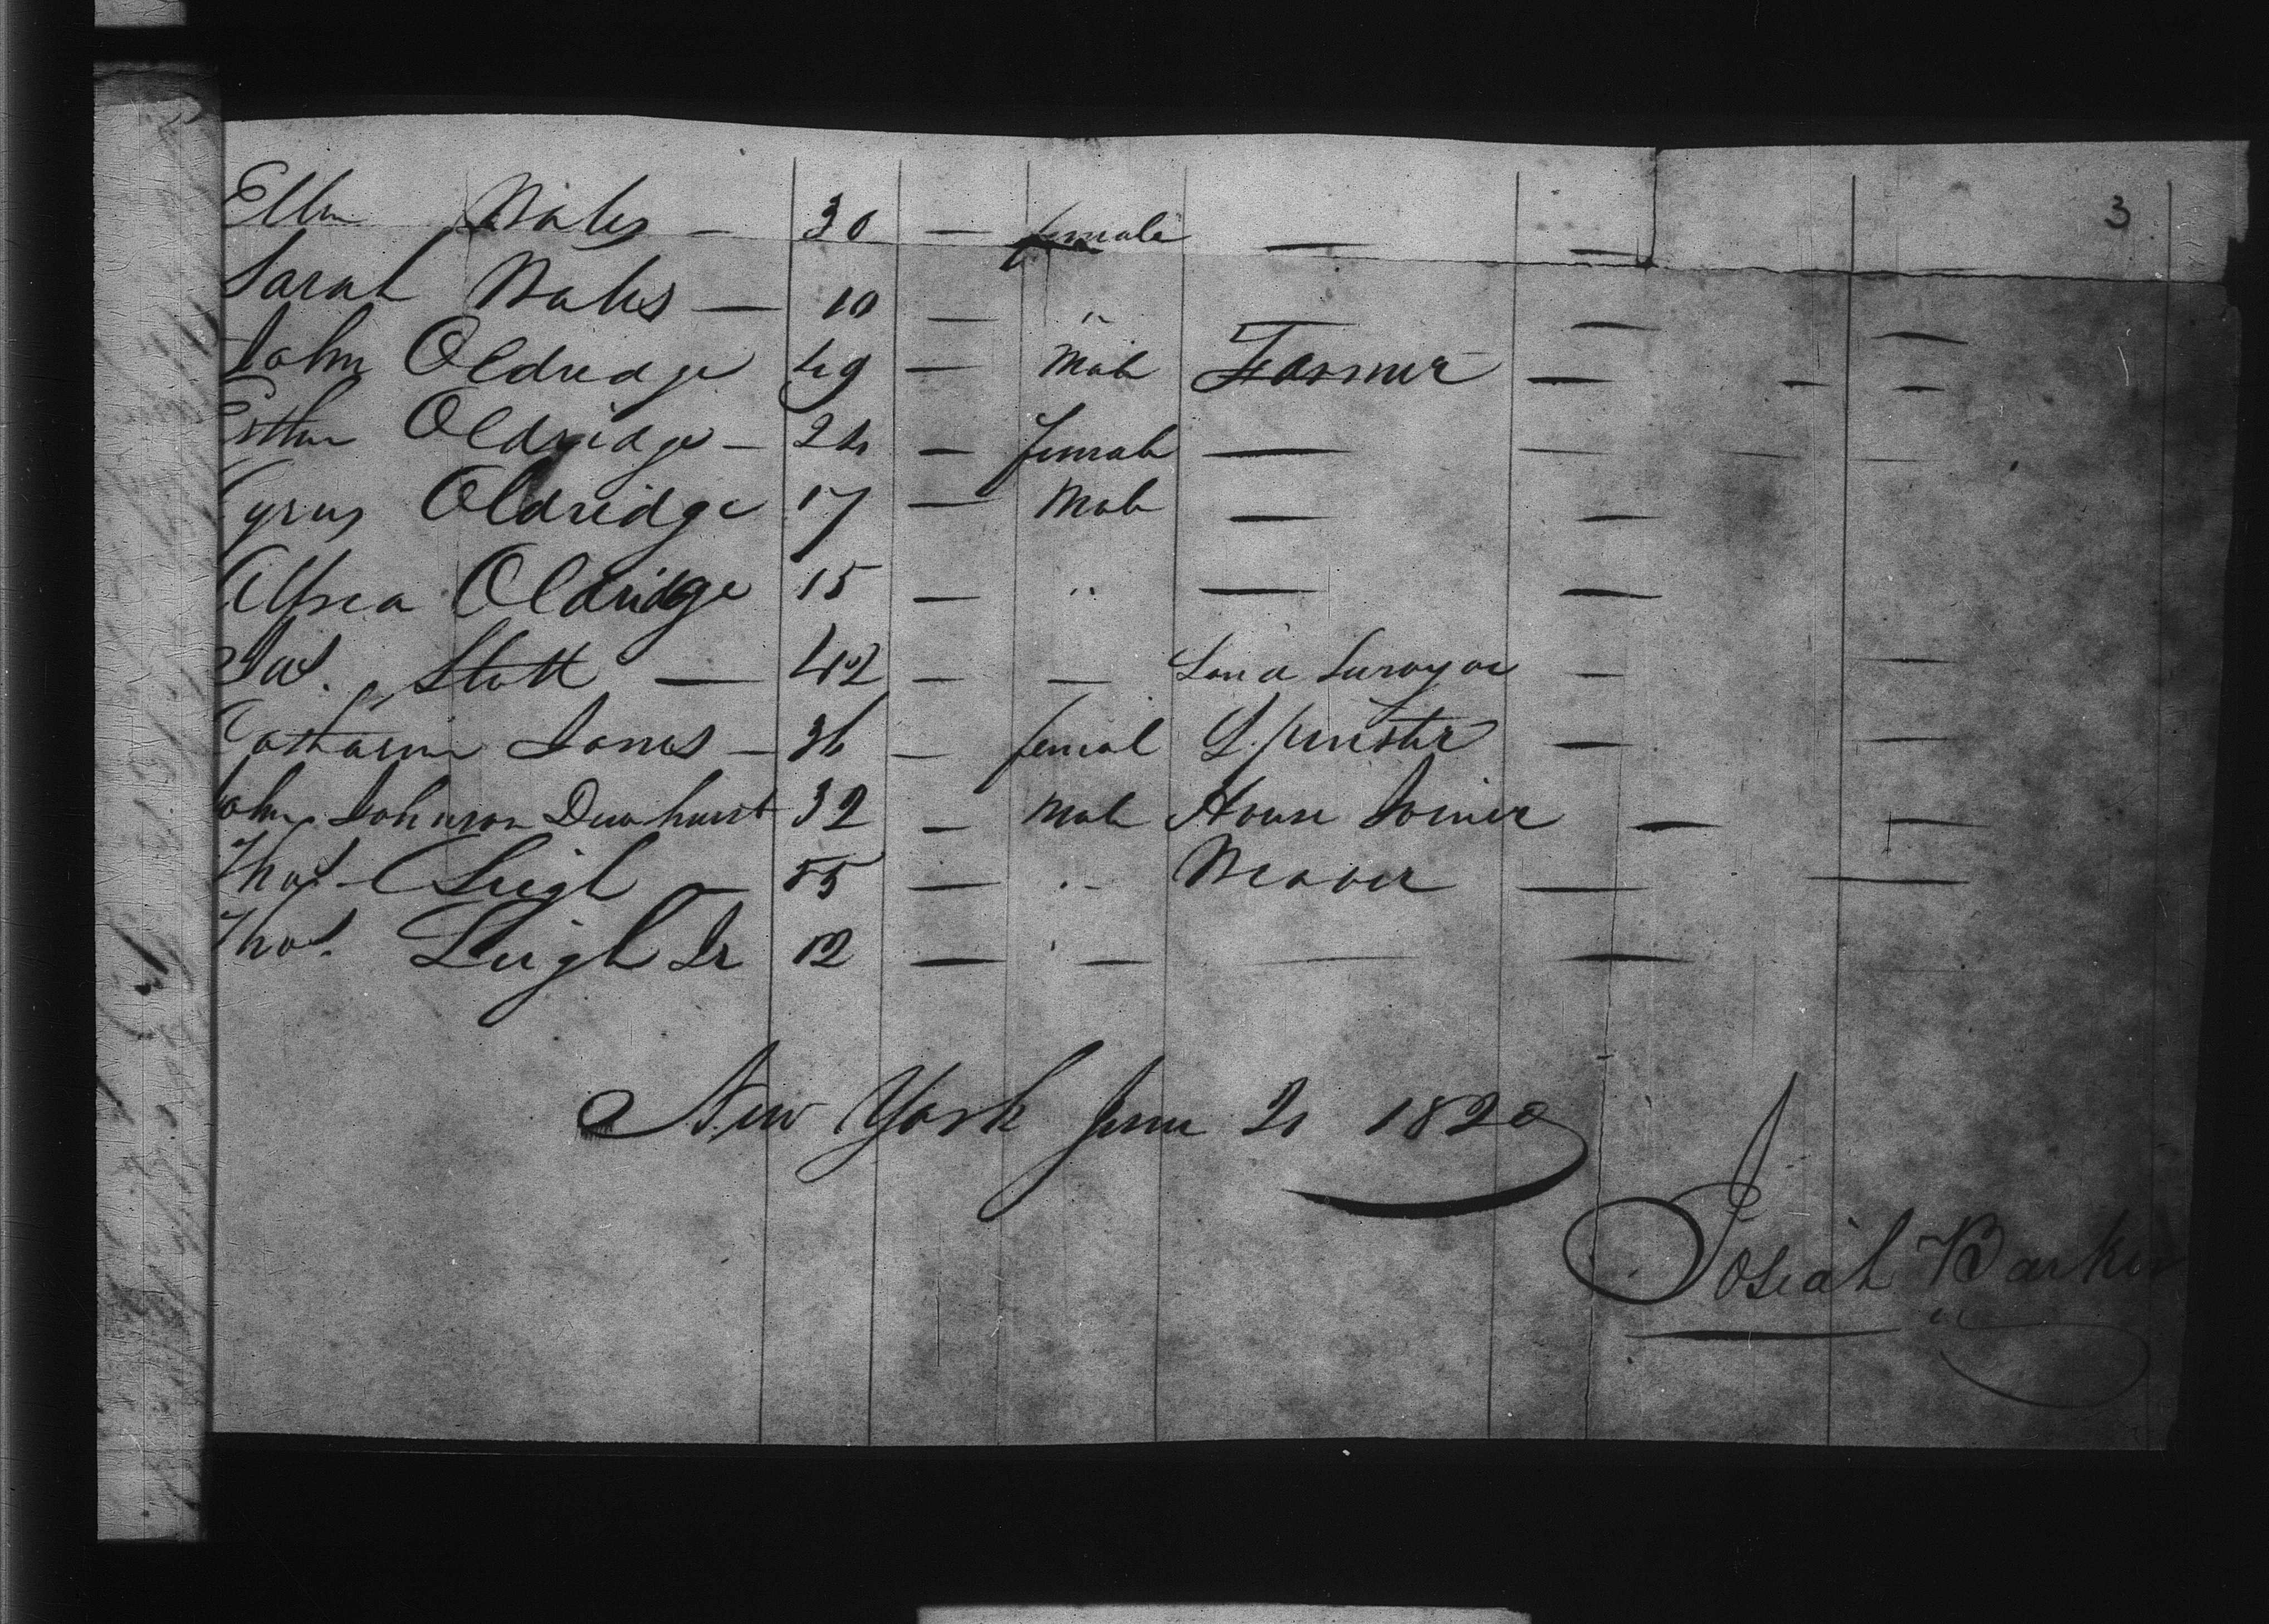 Ellen Wales — 30 — female — — 3
Sarah Wales — 10 — " — — —
John Oldridge 49 — Male Farmer — — —
Esther Oldridge — 24 — female — — — —
Cyrus Oldridge 17 — Male — —
Oldridge 15 — " — —
Jas. Stott — 42 — — Land Surveyor — —
Catharine Jones — 36 — female Spinster — —
John Johnson Dewhurst 32 — Male House Joiner — —
Thos. Leigh — 55 — " Weaver — —
Thos. Leigh Jr 12 — " — — —
New York June 21 1820
Josiah Barker